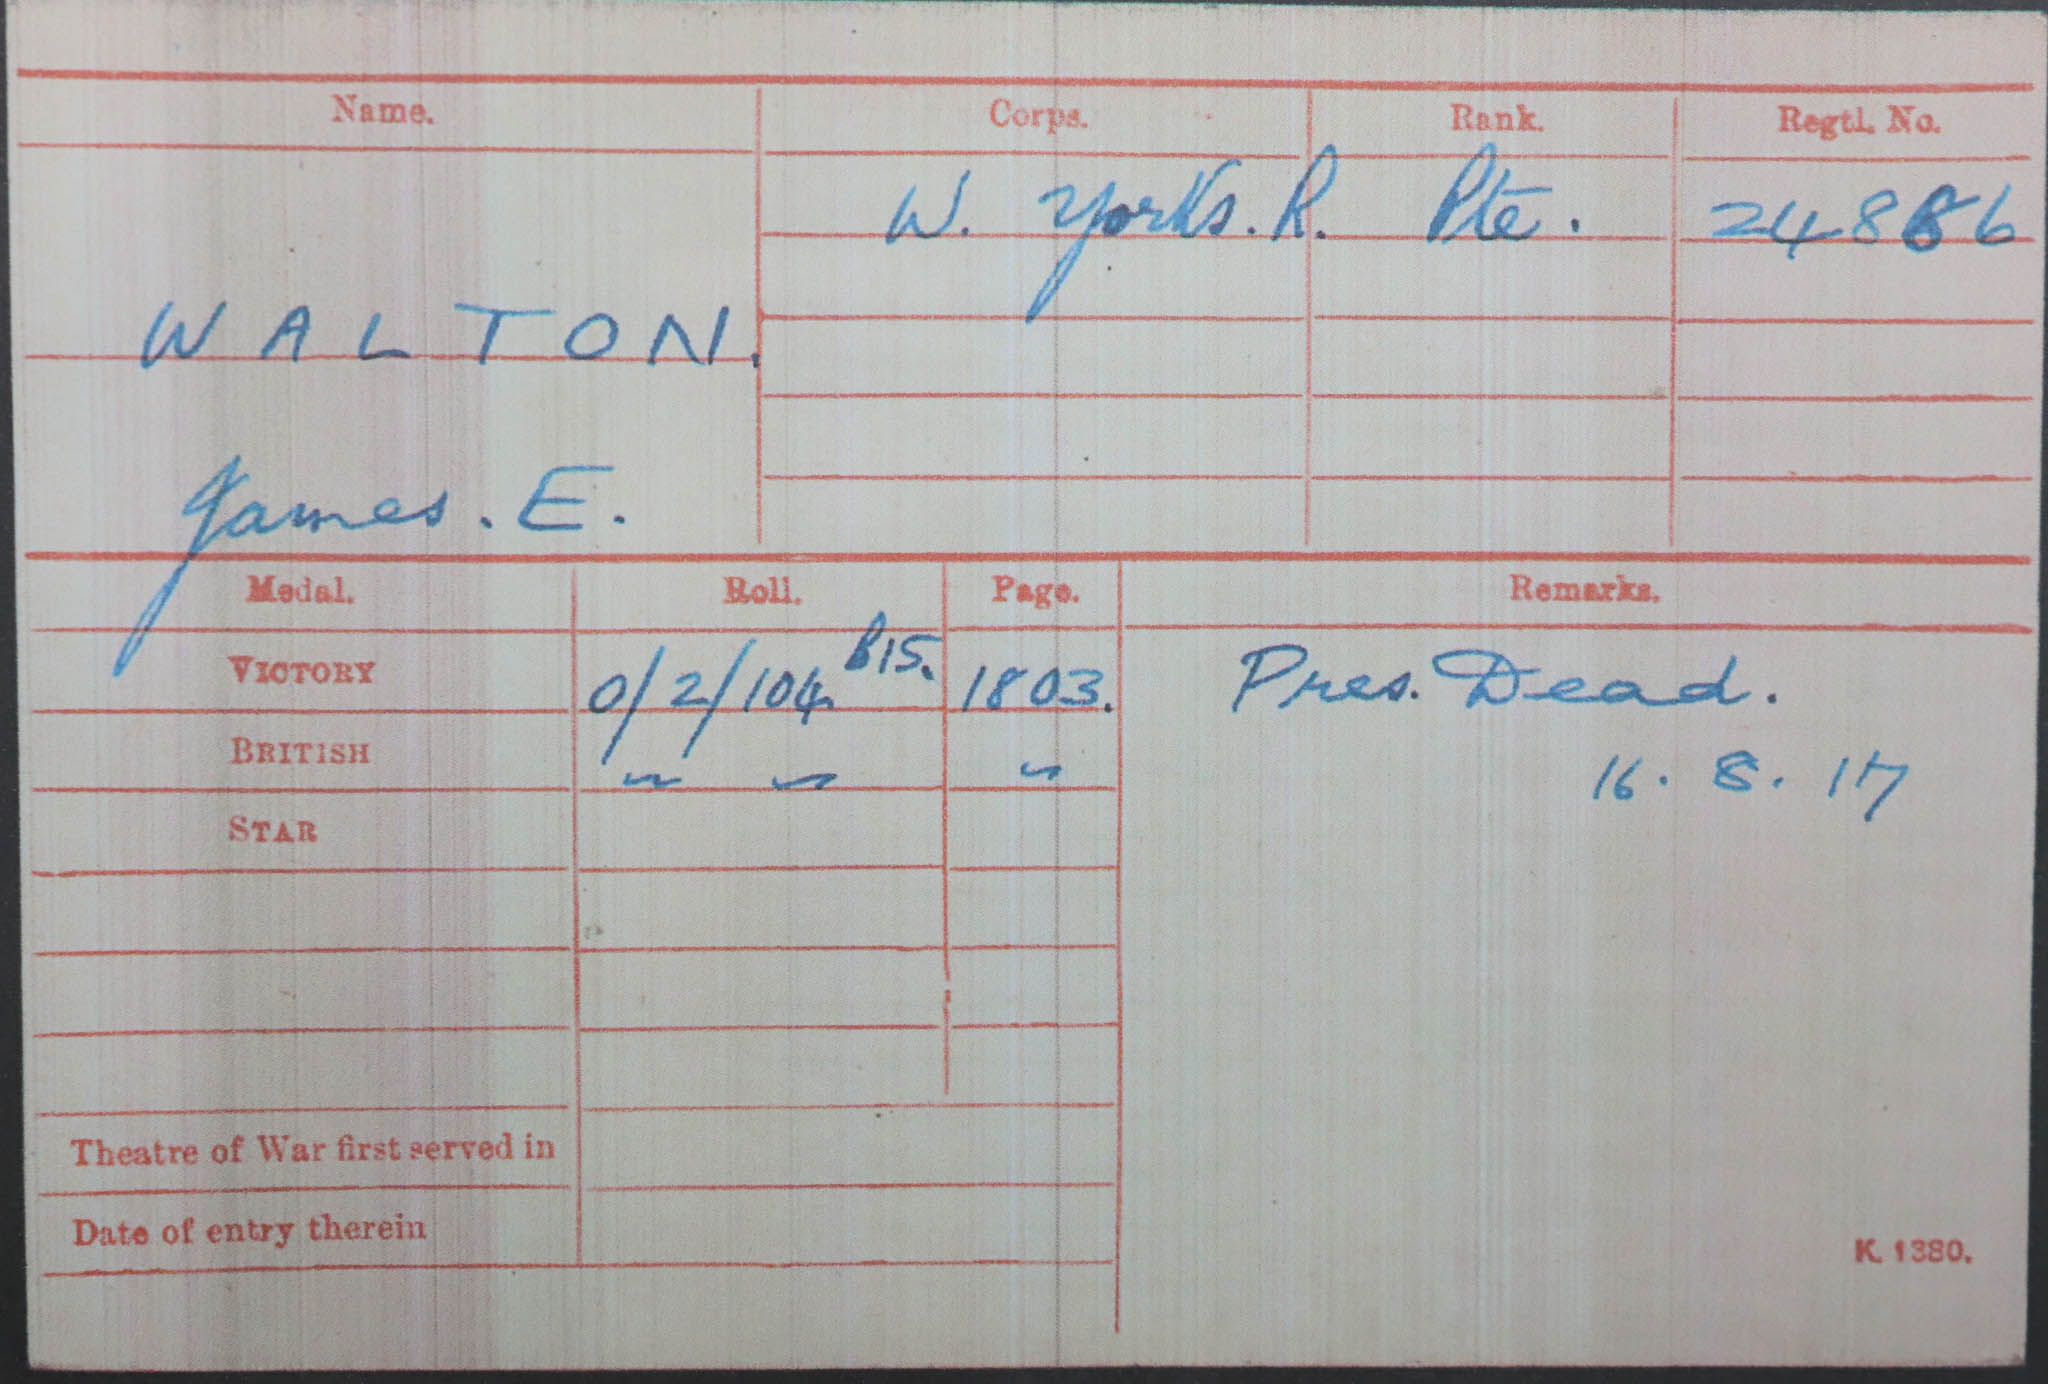 Name. Corps. Rank. Regtl. No.
W. Yorks. R. Pte. 24886
WALTON.
James. E.
Medal. Roll. Page. Remarks.
VICTORY 0/2/104 B15. 1803. Pres. Dead.
BRITISH " " " 16.8.17
STAR
Theatre of War first served in
Date of entry therein
K. 1380.